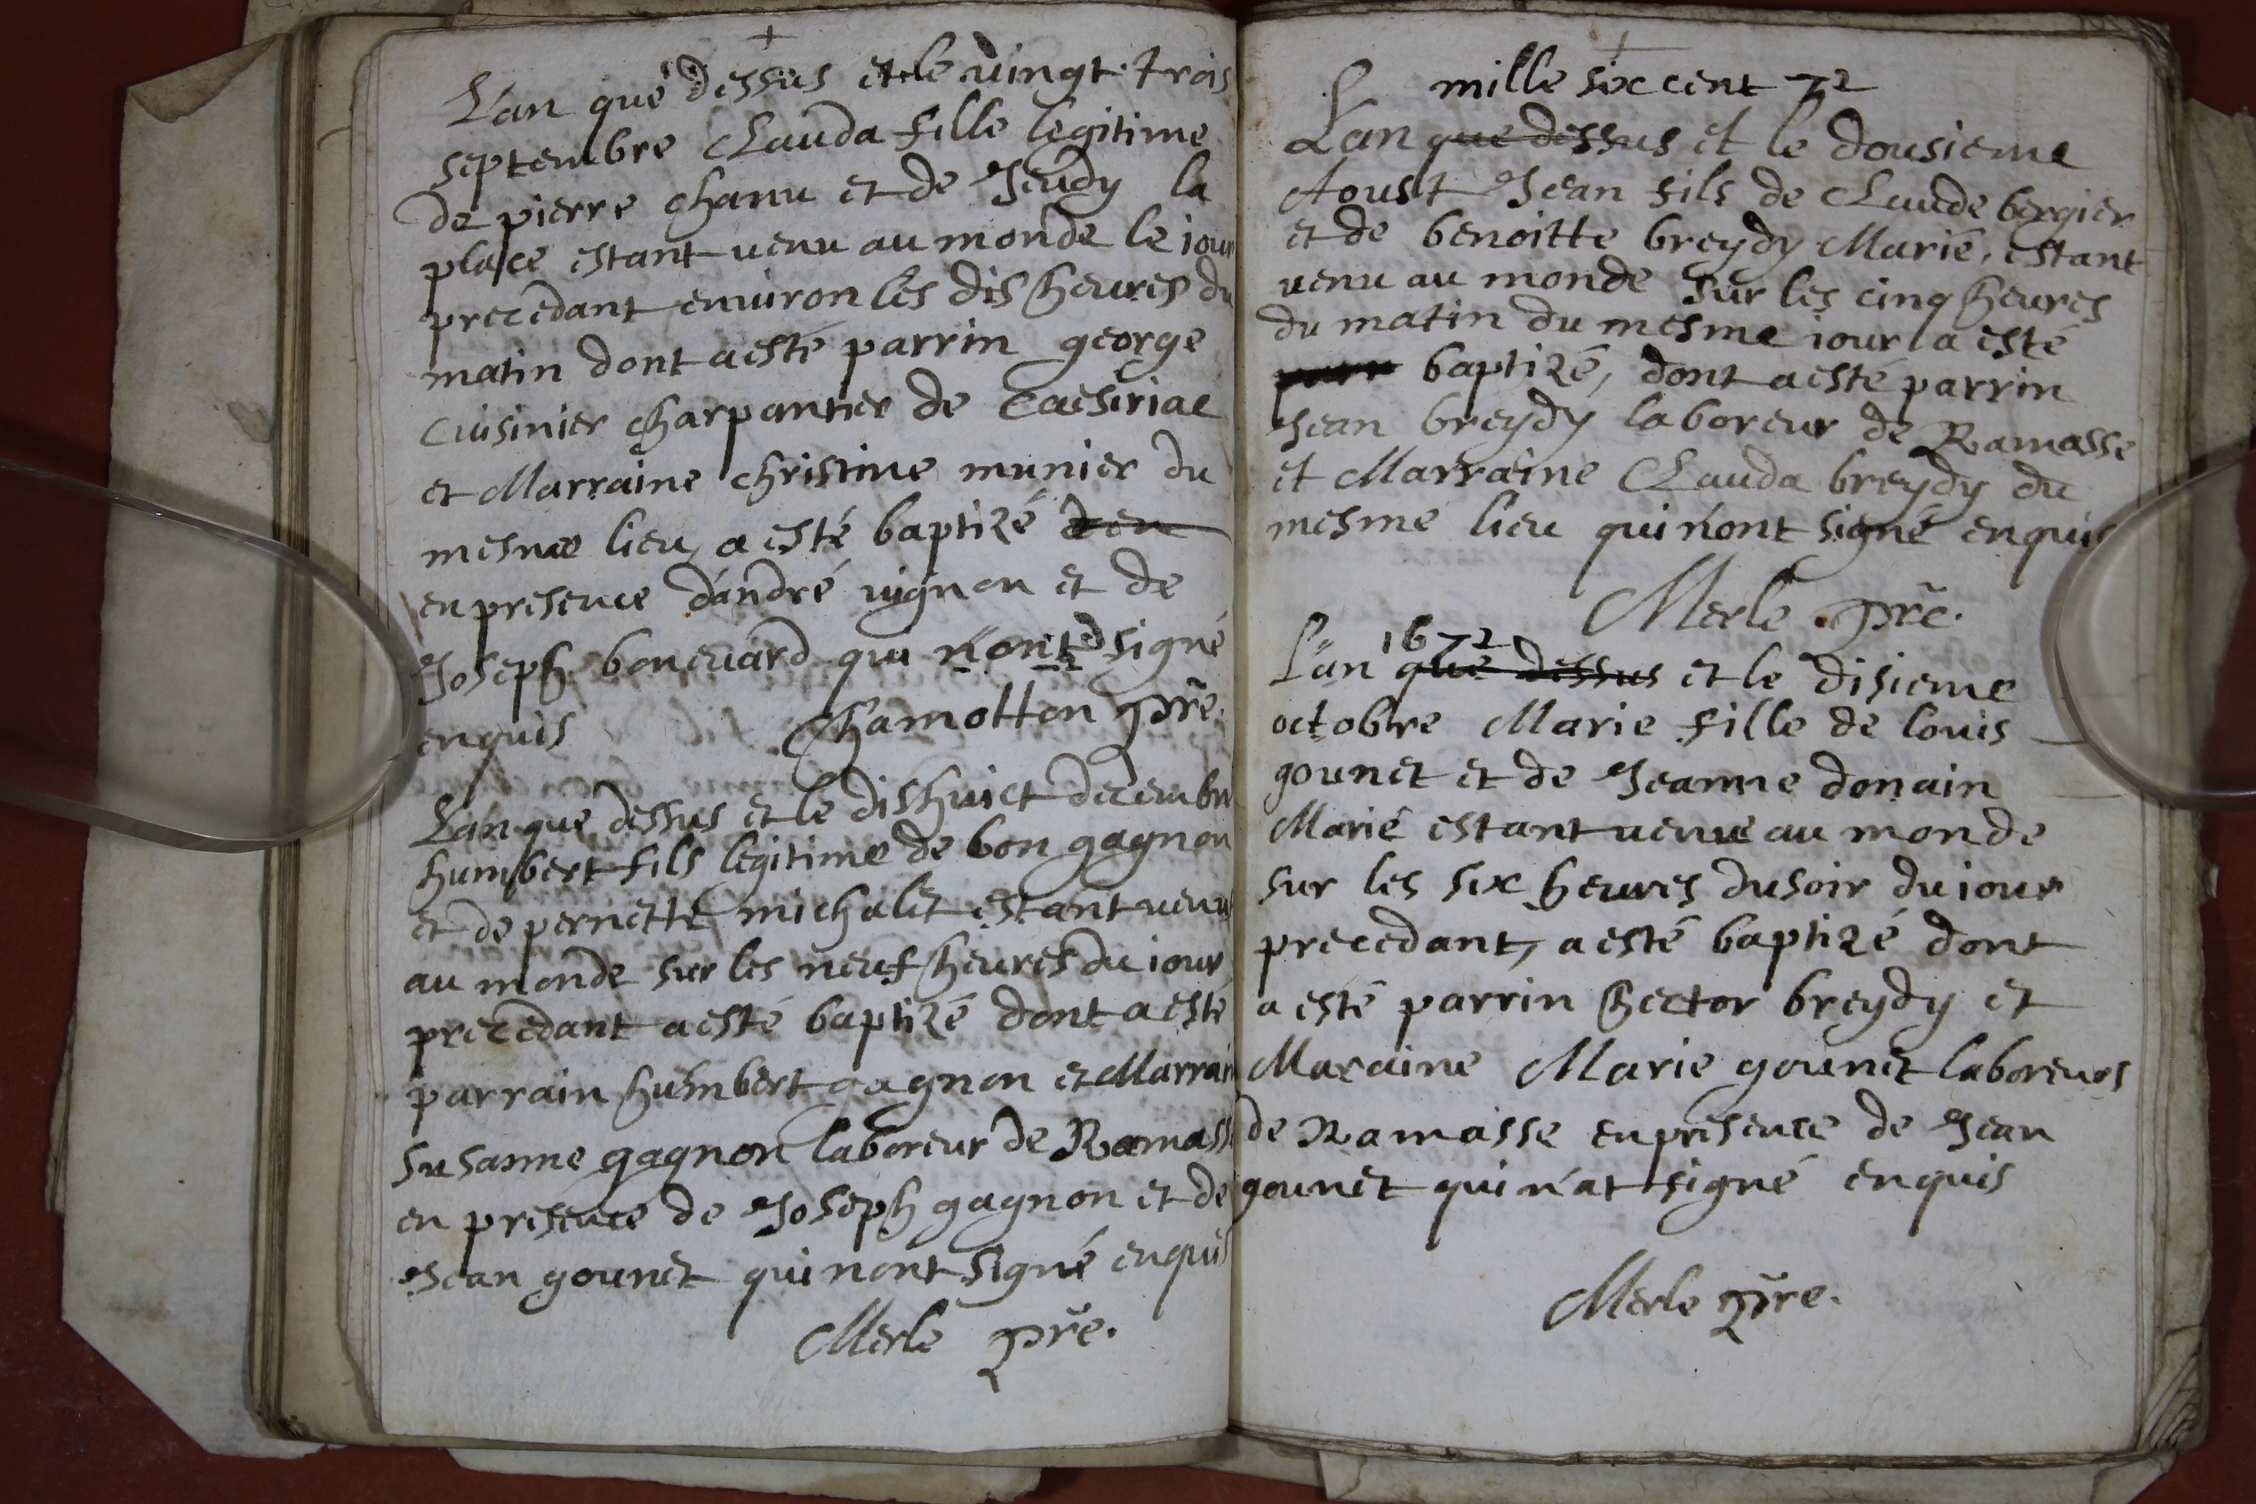 L'an que dessus et le vingt trois
septembre Clauda fille legitime
de pierre chanu et de Jeudy la
place estant venu au monde le iour
precedant environ les dis heures du
matin dont a esté parrin george
cuisinier charpantier de
et Marraine christine munier du
mesme lieu, a esté baptizé
en presence d'andré vignon et de
Joseph bonevard qui n'ont signé
enquis Chamotton pre.
L'an que dessus et le dishuict decembre
humbert fils legitime de bon gagnon
et de pernette michalet estant venu
au monde sur les neuf heures du iour
precedant a esté baptizé dont a esté
parrain humbert gagnon et Marrain
susanne gagnon laboreur de Ramasse
en presence de Joseph gagnon et de
Jean gounet qui nont signé enquis
Merle pre.
mille six cent 72
L'an que dessus et le dousieme
Aoust Jean fils de Claude bergier
et de benoitte breydy Marié, estant
venu au monde sur les cinq heures
du matin du mesme iour a esté
baptizé, dont a esté parrin
Jean breydy laboreur de Ramasse
et Marraine Clauda breydy du
mesme lieu qui n'ont signé enquis
Merle pre.
1672
L'an que dessus et le disieme
octobre Marie fille de louis
gounet et de Jeanne donain
Marié estant venue au monde
sur les six heures du soir du iour
precedant, a esté baptizé dont
a esté parrin hector breydy et
Maraine Marie gounet laboreurs
de Ramasse en presence de Jean
gounet qui n'at signé enquis
Merle pre.